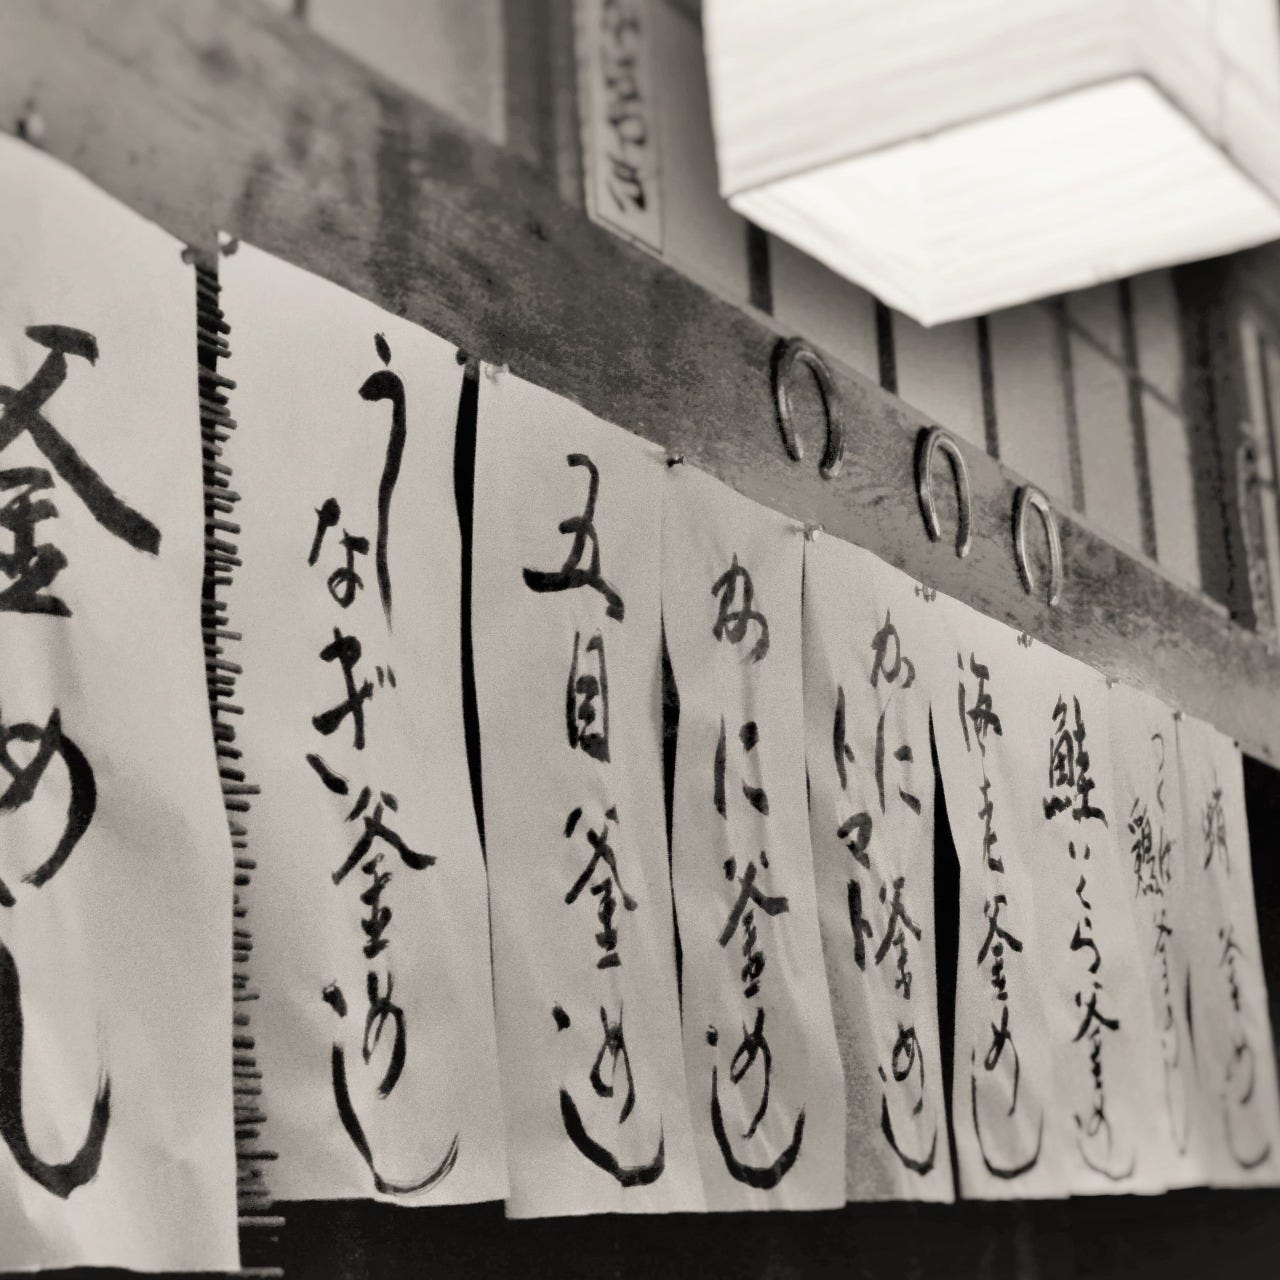 蛸釜めし
つくば鶏釜めし
鮭いくら釜めし
海老釜めし
かにトマト釜めし
かに釜めし
五目釜めし
うなぎ釜めし
釜めし